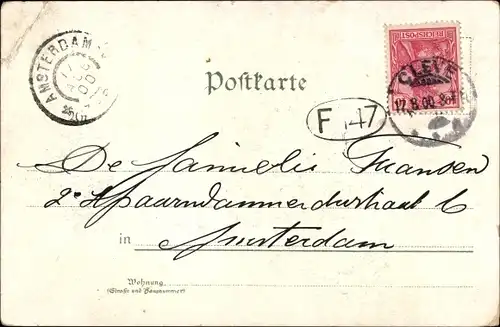 AMSTERDAM
REICHSPOST
CLEVE
Postkarte
17.8.00
F 147
De Familie Fransen
2e Spaarndammerdwarsstraat 6
in Amsterdam
Wohnung
(Straße und Hausnummer)